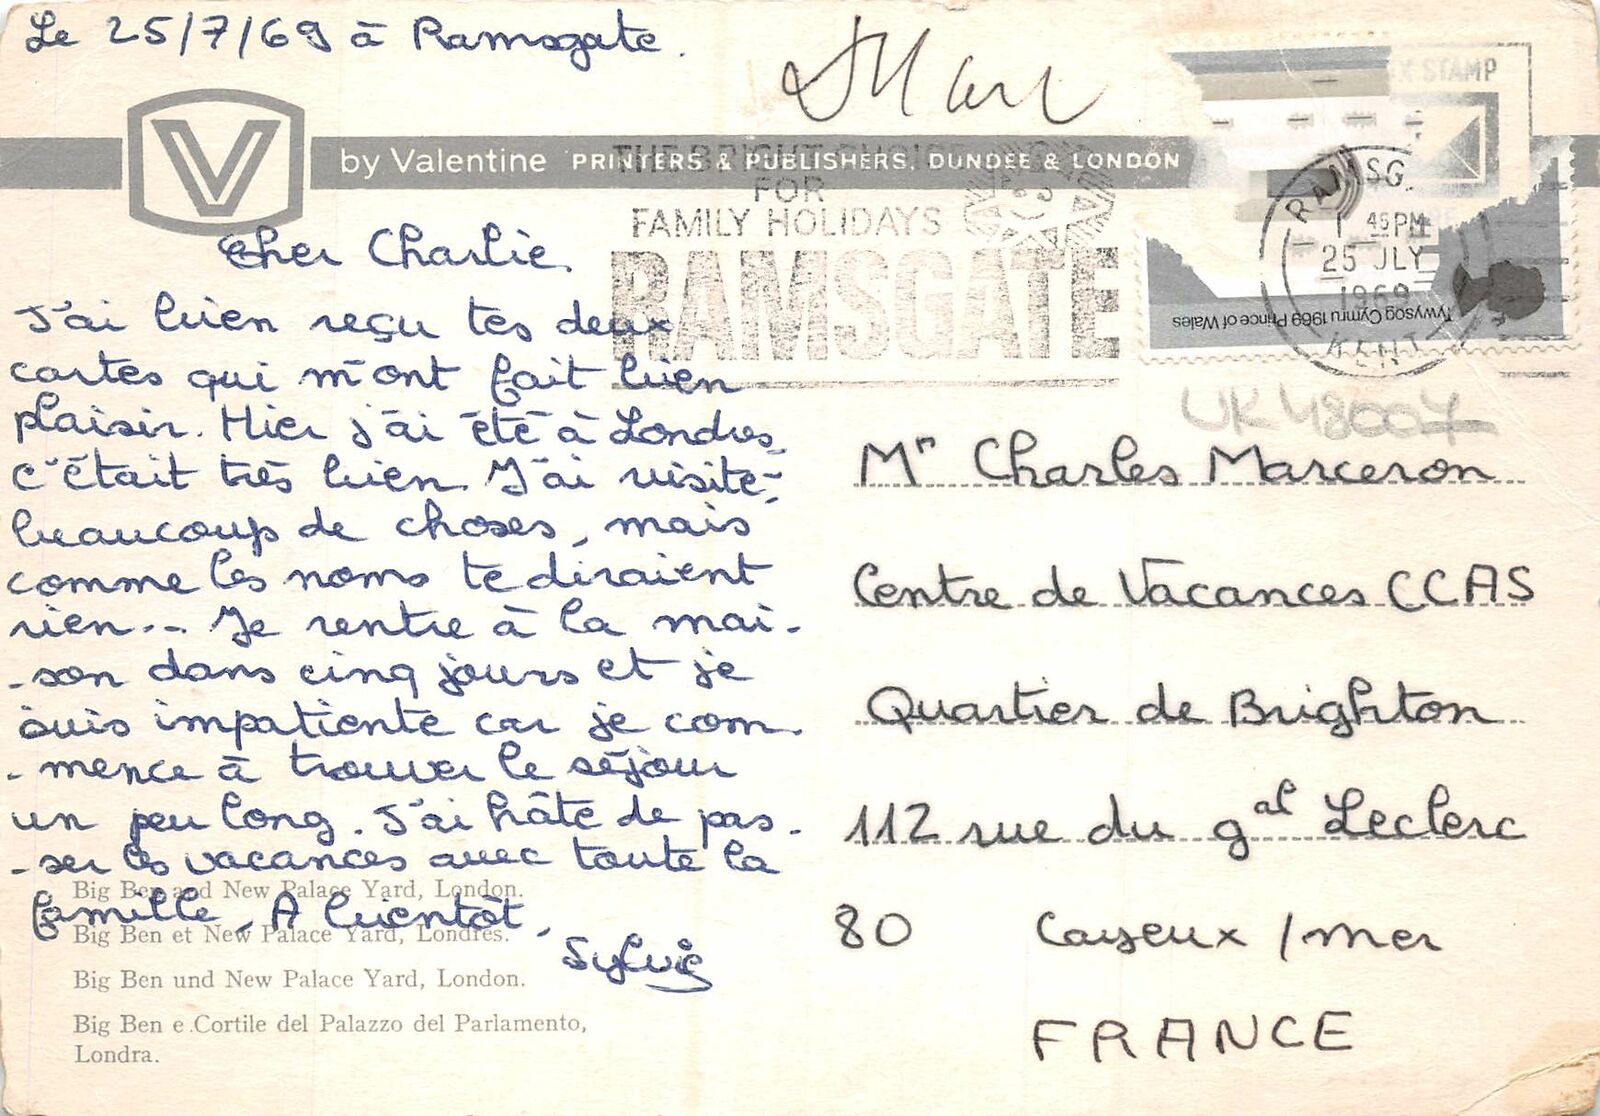 Le 25/7/69 à Ramsgate.
V
by Valentine PRINTERS & PUBLISHERS, DUNDEE & LONDON
THE BRIGHT CHOICE
FOR
FAMILY HOLIDAYS
RAMSGATE
X STAMP
RAMSG.
1 45PM
25 JLY
1969
KENT
Tywysog Cymru 1969 Prince of Wales
UK48007
Cher Charlie.
J'ai bien reçu tes deux
cartes qui m'ont fait bien
plaisir. Hier j'ai été à Londres,
c'était très bien. J'ai visité
beaucoup de choses, mais
comme les noms te diraient
rien... Je rentre à la mai-
-son dans cinq jours et je
suis impatiente car je com-
-mence à trouver le séjour
un peu long. J'ai hâte de pas-
-ser les vacances avec toute la
famille. A bientôt,
Sylvie
Mr Charles Marceron
Centre de Vacances CCAS
Quartier de Brighton
112 rue du gal Leclerc
80 Cayeux /mer
FRANCE
Big Ben and New Palace Yard, London.
Big Ben et New Palace Yard, Londres.
Big Ben und New Palace Yard, London.
Big Ben e Cortile del Palazzo del Parlamento,
Londra.